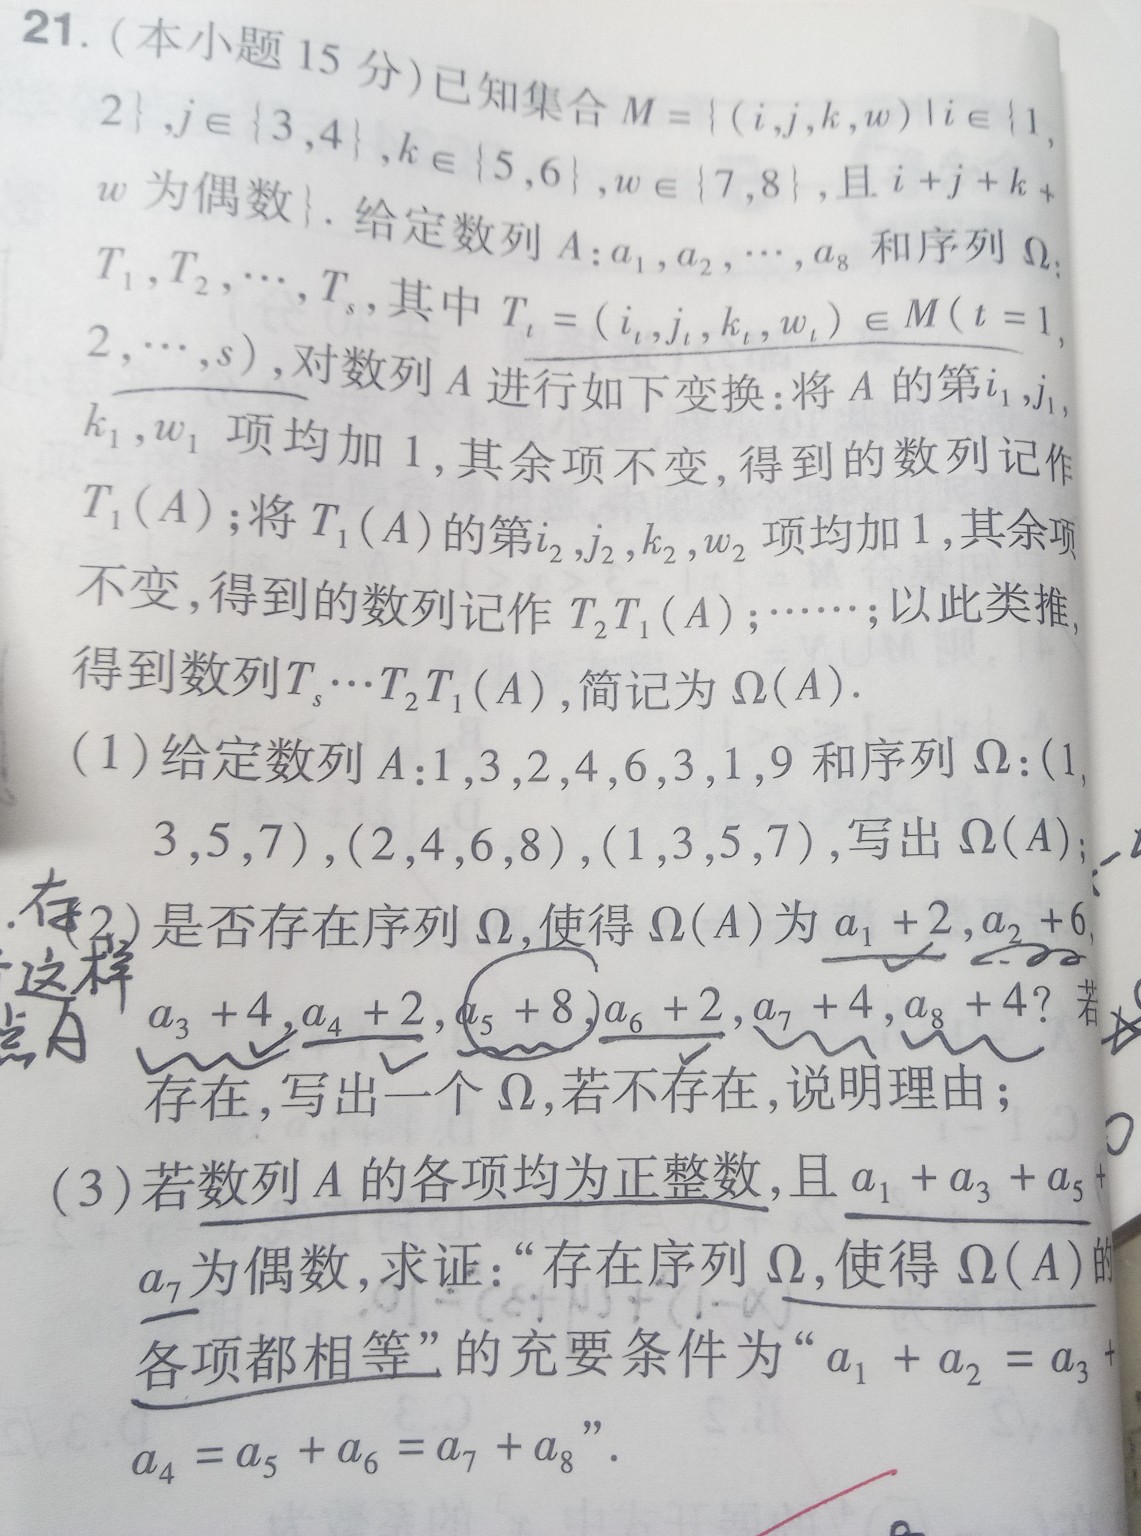 21. (本小题 15 分)已知集合 M = {(i,j,k,w)|i∈{1,
2},j∈{3,4},k∈{5,6},w∈{7,8},且 i+j+k+
w 为偶数}. 给定数列 A:a₁,a₂,…,a₈ 和序列 Ω:
T₁,T₂,…,Tₛ,其中 Tₜ = (iₜ,jₜ,kₜ,wₜ)∈M(t = 1,
2,…,s),对数列 A 进行如下变换:将 A 的第i₁,j₁,
k₁,w₁ 项均加 1,其余项不变,得到的数列记作
T₁(A);将 T₁(A)的第i₂,j₂,k₂,w₂ 项均加 1,其余项
不变,得到的数列记作 T₂T₁(A);……;以此类推,
得到数列Tₛ…T₂T₁(A),简记为 Ω(A).
(1)给定数列 A:1,3,2,4,6,3,1,9 和序列 Ω:(1,
3,5,7),(2,4,6,8),(1,3,5,7),写出 Ω(A);
存
(2)是否存在序列 Ω,使得 Ω(A)为 a₁ +2,a₂ +6,
这样
a₃ +4,a₄ +2,a₅ +8,a₆ +2,a₇ +4,a₈ +4? 若
存在,写出一个 Ω,若不存在,说明理由;
(3)若数列 A 的各项均为正整数,且 a₁ + a₃ + a₅ +
a₇为偶数,求证:“存在序列 Ω,使得 Ω(A)的
各项都相等”的充要条件为“a₁ + a₂ = a₃ +
a₄ = a₅ + a₆ = a₇ + a₈”.